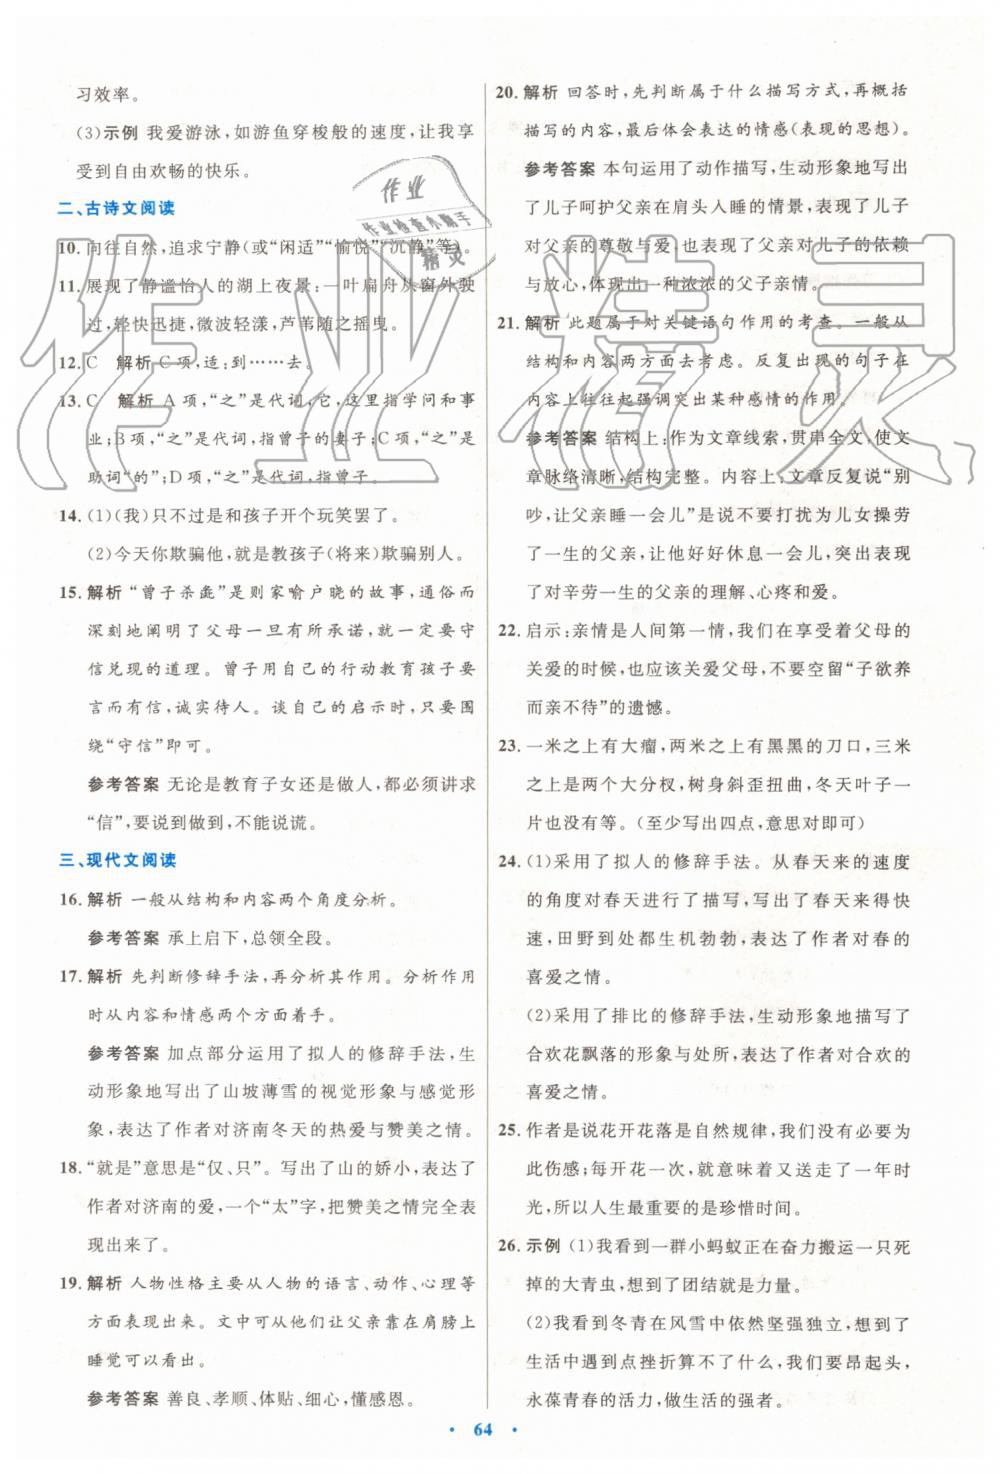 习效率。
(3)示例 我爱游泳,如游鱼穿梭般的速度,让我享
受到自由欢畅的快乐。
二、古诗文阅读
10. 向往自然,追求宁静(或“闲适”“愉悦”“沉静”等)。
11. 展现了静谧怡人的湖上夜景:一叶扁舟从窗外驶
过,轻快迅捷,微波轻漾,芦苇随之摇曳。
12. C 解析 C项,适:到……去。
13. C 解析 A项,“之”是代词,它,这里指学问和事
业;B项,“之”是代词,指曾子的妻子;C项,“之”是
助词“的”;D项,“之”是代词,指曾子的孩子。
14. (1)(我)只不过是和孩子开个玩笑罢了。
(2)今天你欺骗他,就是教孩子(将来)欺骗别人。
15. 解析 “曾子杀彘”是则家喻户晓的故事,通俗而
深刻地阐明了父母一旦有所承诺,就一定要守
信兑现的道理。曾子用自己的行动教育孩子要
言而有信,诚实待人。谈自己的启示时,只要围
绕“守信”即可。
参考答案 无论是教育子女还是做人,都必须讲求
“信”,要说到做到,不能说谎。
三、现代文阅读
16. 解析 一般从结构和内容两个角度分析。
参考答案 承上启下,总领全段。
17. 解析 先判断修辞手法,再分析其作用。分析作用
时从内容和情感两个方面着手。
参考答案 加点部分运用了拟人的修辞手法,生
动形象地写出了山坡薄雪的视觉形象与感觉形
象,表达了作者对济南冬天的热爱与赞美之情。
18. “就是”意思是“仅、只”。写出了山的娇小,表达了
作者对济南的爱,一个“太”字,把赞美之情完全表
现出来了。
19. 解析 人物性格主要从人物的语言、动作、心理等
方面表现出来。文中可以从让父亲靠在肩膀上
睡觉可以看出。
参考答案 善良、孝顺、体贴、细心,懂感恩。
20. 解析 回答时,先判断属于什么描写方式,再概括
描写的内容,最后体会表达的情感(表现的思想)。
参考答案 本句运用了动作描写,生动形象地写出
了儿子呵护父亲在肩头入睡的情景,表达了儿子
对父亲的尊敬与爱,也表现了父亲对儿子的依赖
与放心,体现出一种浓浓的父子亲情。
21. 解析 此题属于对关键语句作用的考查。一般从
结构和内容两方面去考虑。反复出现的句子在
内容上往往起强调突出某种感情的作用。
参考答案 结构上:作为文章线索,贯串全文,使文
章脉络清晰,结构完整。内容上:文章反复说“别
吵,让父亲睡一会儿”是说不要打扰为儿女操劳
了一生的父亲,让他好好休息一会儿,突出表现
了对辛劳一生的父亲的理解、心疼和爱。
22. 启示:亲情是人间第一情,我们在享受着父母的
关爱的时候,也应该关爱父母,不要空留“子欲养
而亲不待”的遗憾。
23. 一米之上有大瘤,两米之上有黑黑的刀口,三米
之上是两个大分杈,树身斜歪扭曲,冬天叶子一
片也没有等。(至少写出四点,意思对即可)
24. (1)采用了拟人的修辞手法。从春天来的速度
的角度对春天进行了描写,写出了春天来得快
速,田野到处都生机勃勃,表达了作者对春的
喜爱之情。
(2)采用了排比的修辞手法,生动形象地描写了
合欢花飘落的形象与处所,表达了作者对合欢的
喜爱之情。
25. 作者是说花开花落是自然规律,我们没有必要为
此伤感;每开花一次,就意味着又送走了一年时
光,所以人生最重要的是珍惜时间。
26. 示例 (1)我看到一群小蚂蚁正在奋力搬运一只死
掉的大青虫,想到了团结就是力量。
(2)我看到冬青在风雪中依然坚强独立,想到了
生活中遇到点挫折算不了什么,我们要昂起头,
永葆青春的活力,做生活的强者。
64
作业
作业检查小助手
精灵
作业精灵